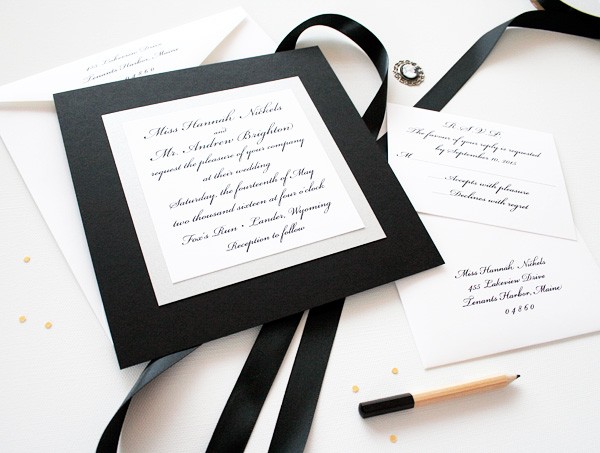 455 Lakeview Drive
Tenants Harbor, Maine
04860
Miss Hannah Nickels
and
Mr. Andrew Brighton
request the pleasure of your company
at their wedding
Saturday, the fourteenth of May
two thousand sixteen at four o'clock
Fox's Run • Lander, Wyoming
Reception to follow
R.S.V.P.
The favour of your reply is requested
by September 10, 2015
M
Accepts with pleasure
Declines with regret
Miss Hannah Nickels
455 Lakeview Drive
Tenants Harbor, Maine
04860